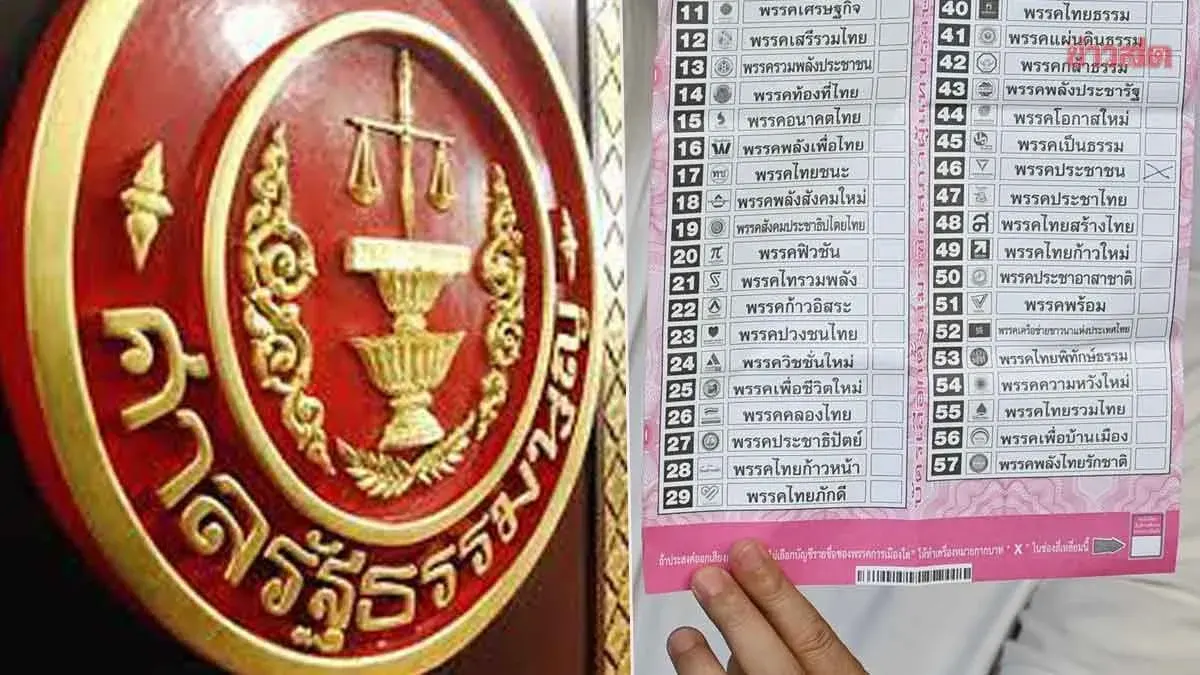 ศาลรัฐธรรมนูญ
ข่าวสด
11 พรรคเศรษฐกิจ
12 พรรคเสรีรวมไทย
13 พรรครวมพลังประชาชน
14 พรรคท้องที่ไทย
15 พรรคอนาคตไทย
16 พรรคพลังเพื่อไทย
17 พรรคไทยชนะ
18 พรรคพลังสังคมใหม่
19 พรรคสังคมประชาธิปไตยไทย
20 พรรคฟิวชัน
21 พรรคไทรวมพลัง
22 พรรคก้าวอิสระ
23 พรรคปวงชนไทย
24 พรรควิชชั่นใหม่
25 พรรคเพื่อชีวิตใหม่
26 พรรคคลองไทย
27 พรรคประชาธิปัตย์
28 พรรคไทยก้าวหน้า
29 พรรคไทยภักดี
40 พรรคไทยธรรม
41 พรรคแผ่นดินธรรม
42 พรรคกล้าธรรม
43 พรรคพลังประชารัฐ
44 พรรคโอกาสใหม่
45 พรรคเป็นธรรม
46 พรรคประชาชน
47 พรรคประชาไทย
48 พรรคไทยสร้างไทย
49 พรรคไทยก้าวใหม่
50 พรรคประชาอาสาชาติ
51 พรรคพร้อม
52 พรรคเครือข่ายชาวนาแห่งประเทศไทย
53 พรรคไทยพิทักษ์ธรรม
54 พรรคความหวังใหม่
55 พรรคไทยรวมไทย
56 พรรคเพื่อบ้านเมือง
57 พรรคพลังไทยรักชาติ
ถ้าประสงค์ออกเสียง ไม่เลือกบัญชีรายชื่อของพรรคการเมืองใด" ให้ทำเครื่องหมายกากบาท "X" ในช่องสี่เหลี่ยมนี้